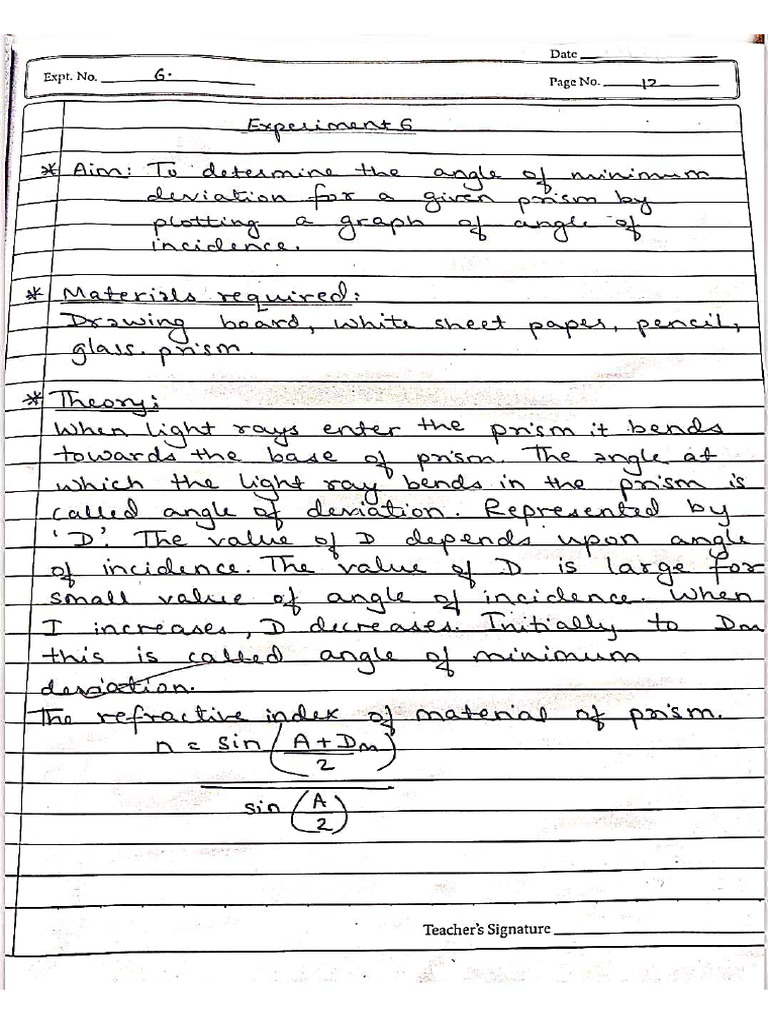 Date
Expt. No. 6.
Page No. 12
Experiment 6
* Aim: To determine the angle of minimum
deviation for a given prism by
plotting a graph of angle of
incidence.
* Materials required:
Drawing board, white sheet paper, pencil,
glass prism.
* Theory:
When light rays enter the prism it bends
towards the base of prism. The angle at
which the light ray bends in the prism is
called angle of deviation. Represented by
'D'. The value of D depends upon angle
of incidence. The value of D is large for
small value of angle of incidence. When
I increases, D decreases. Initially to Dm
this is called angle of minimum
deviation.
The refractive index of material of prism.
n = sin (A + Dm / 2)
sin (A / 2)
Teacher's Signature